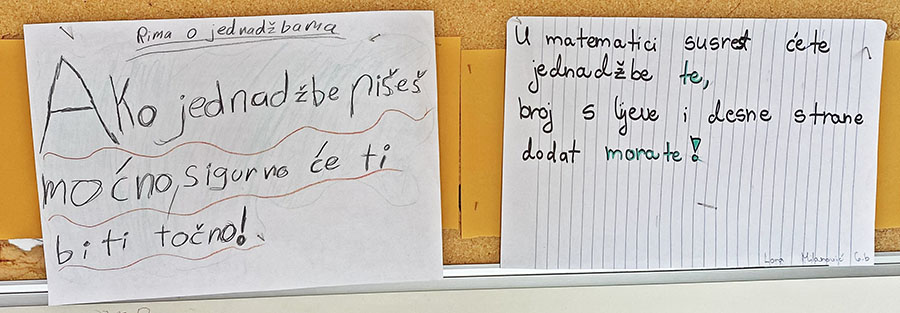 Rima o jednadžbama
Ako jednadžbe pišeš
moćno, sigurno će ti
biti točno!
U matematici susret ćete
jednadžbe te,
broj s ljeve i desne strane
dodat morate!
Milanović 6.b